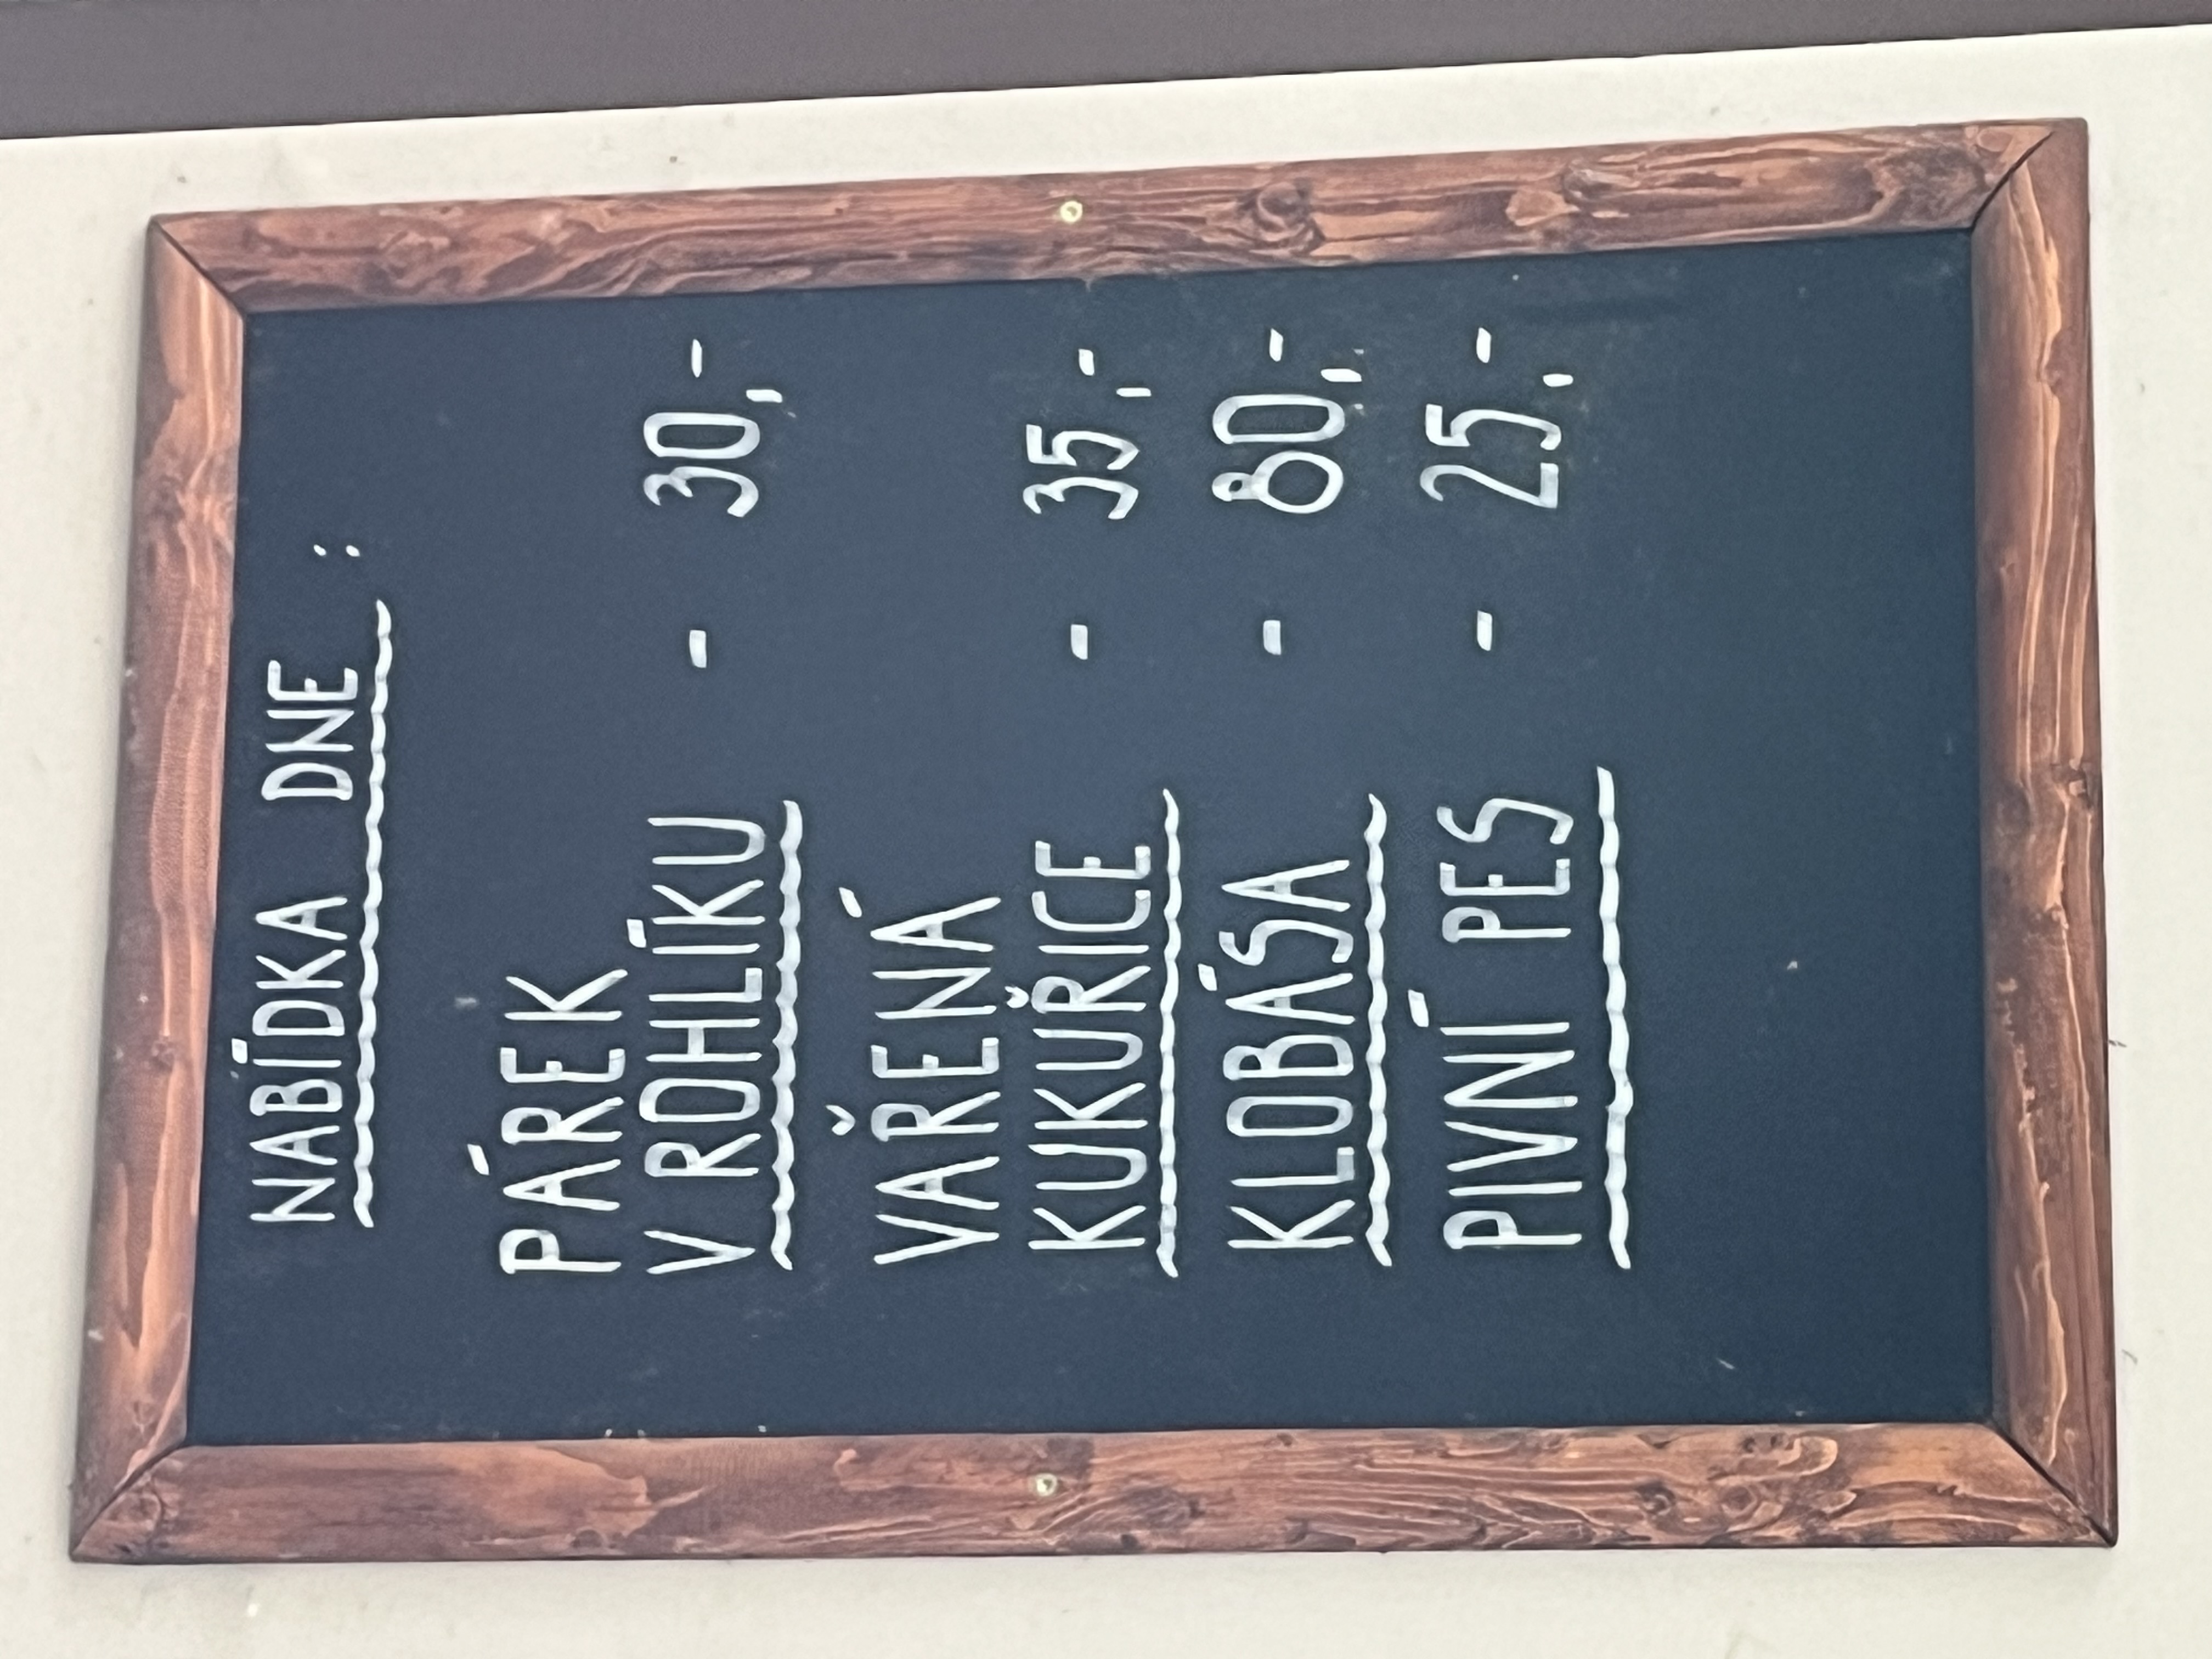 NABÍDKA DNE :
PÁREK
V ROHLÍKU - 30,-
VAŘENÁ
KUKUŘICE - 35,-
KLOBÁSA - 80,-
PIVNÍ PES - 25,-